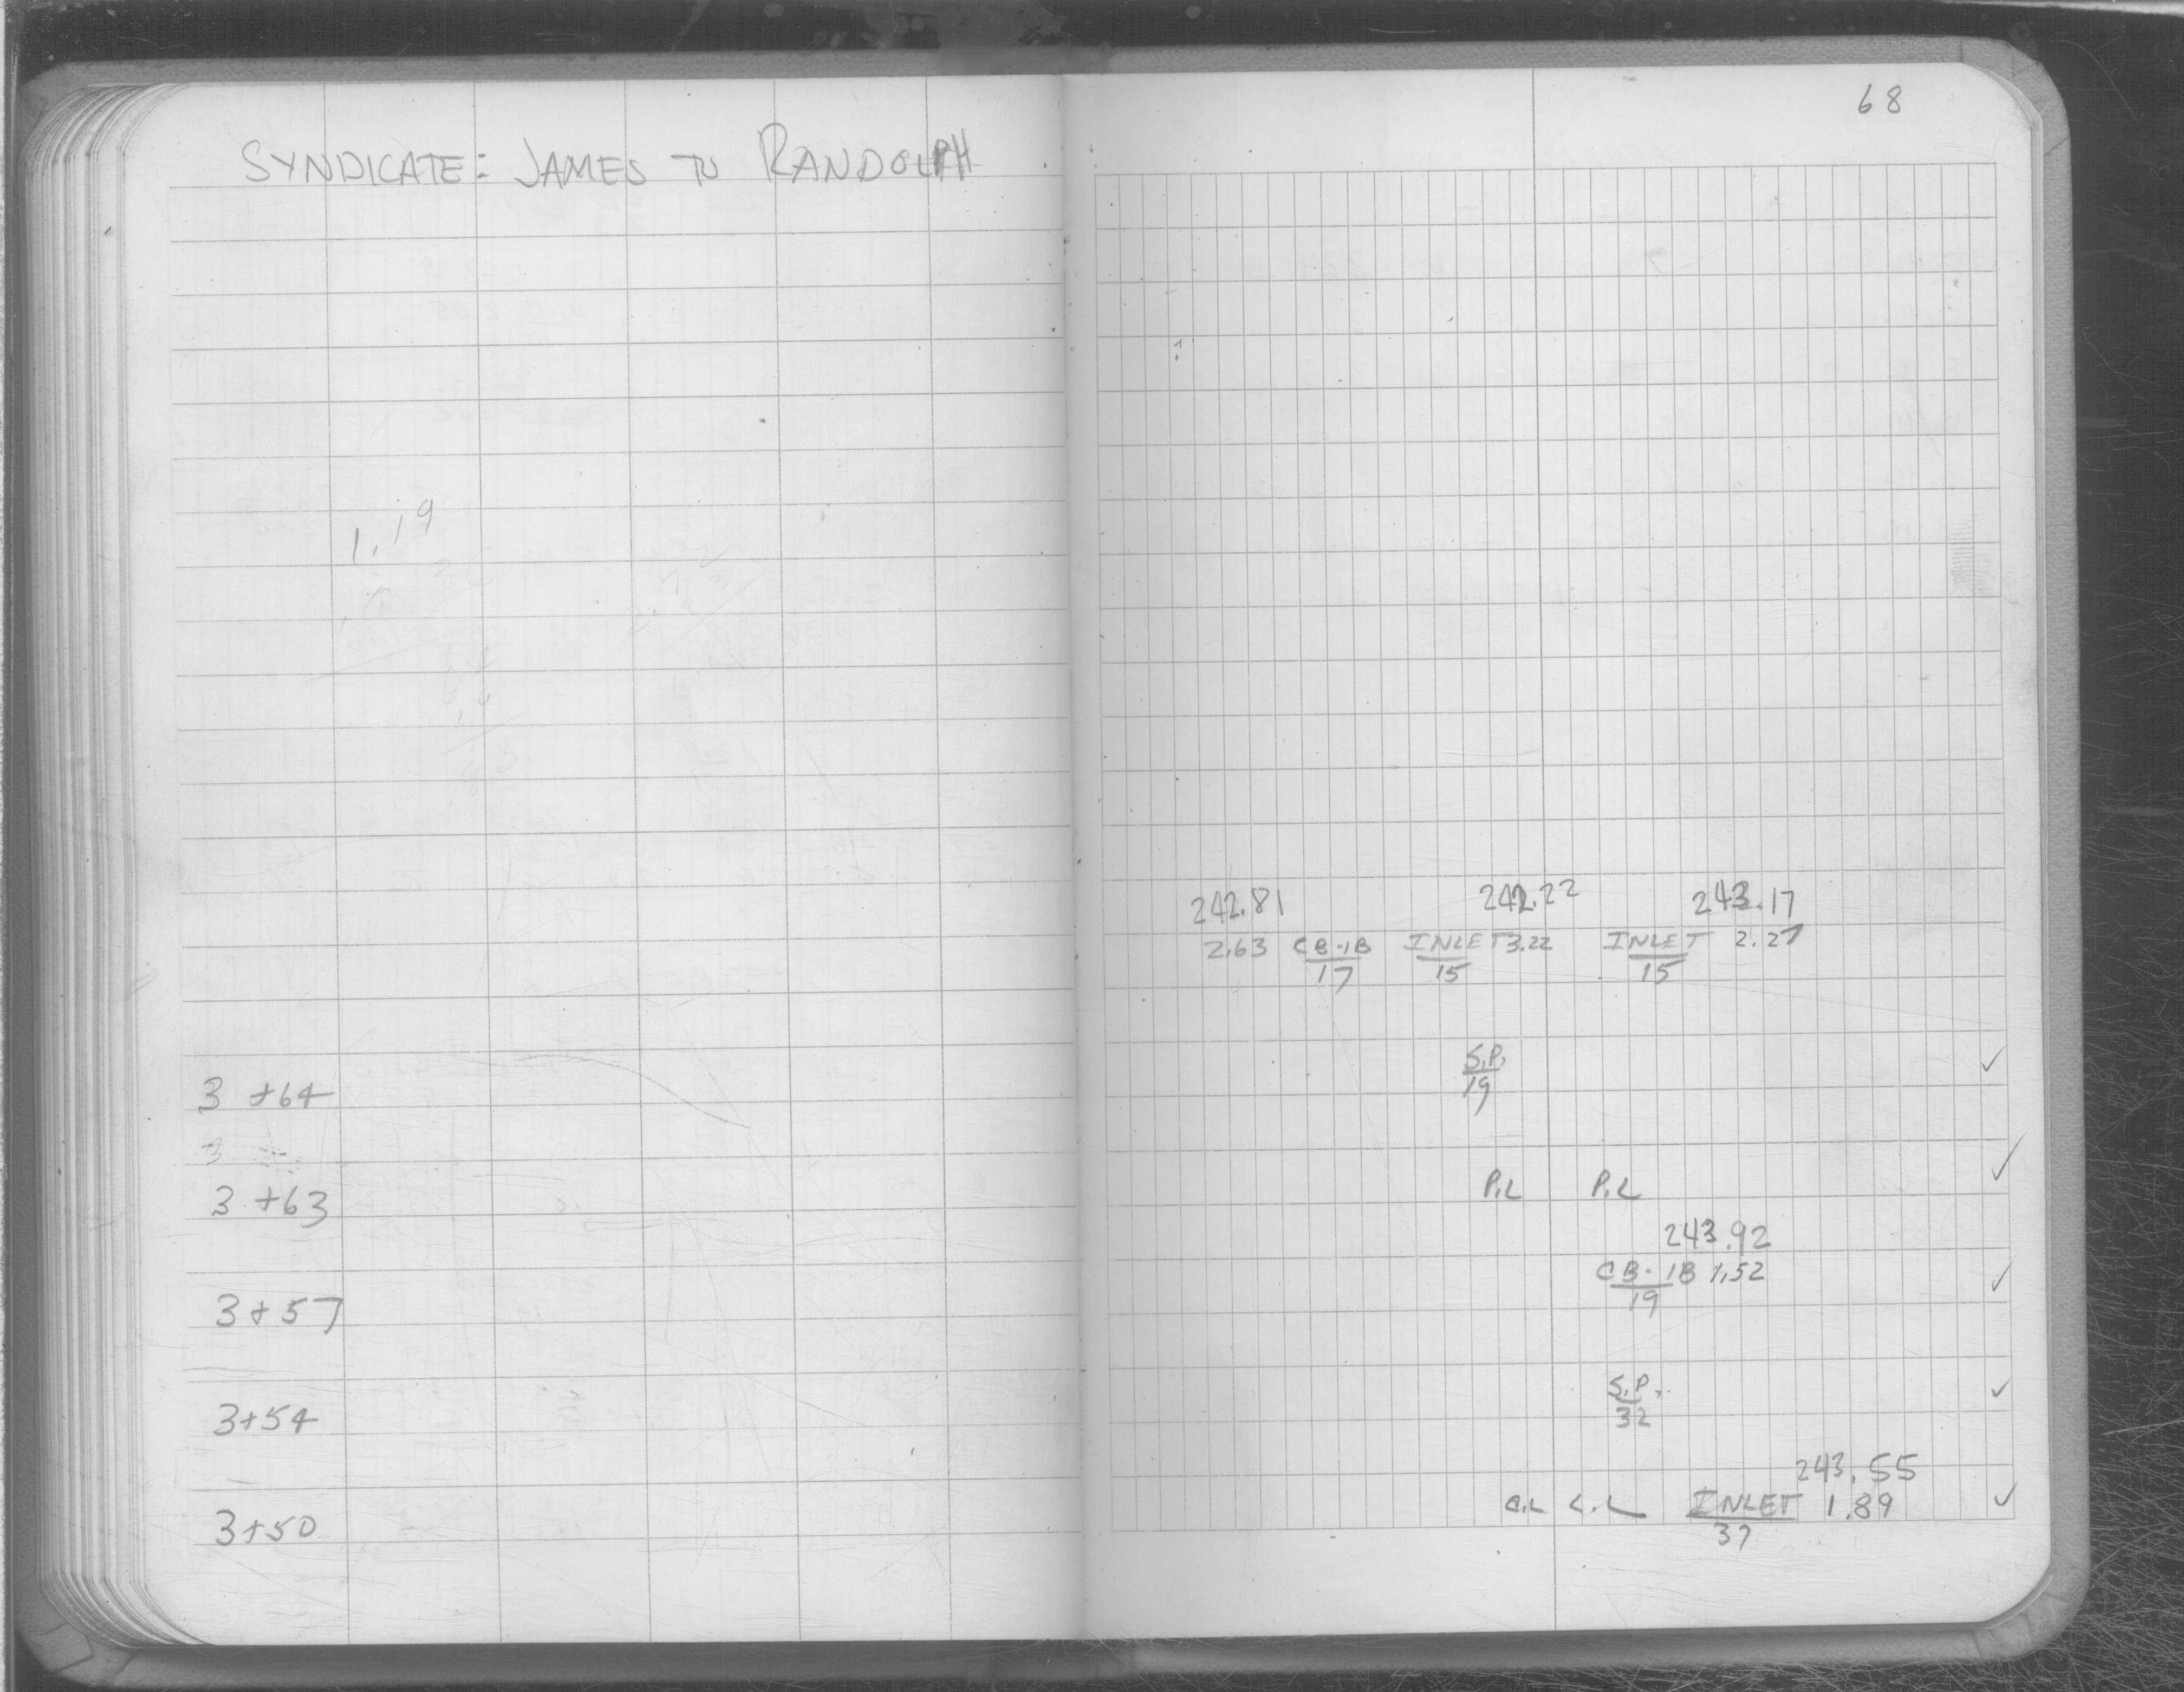 68
SYNDICATE: JAMES TO RANDOLPH
1.19
242.81 242.22 243.17
2.63 CB-1B INLET 3.22 INLET 2.27
17 15 15
S.P.
3 +64 19
3
3 +63 P.L P.L
243.92
CB-1B 1.52
3+57 19
S.P.
3+54 32
243.55
3+50 C.L L.L INLET 1.89
37